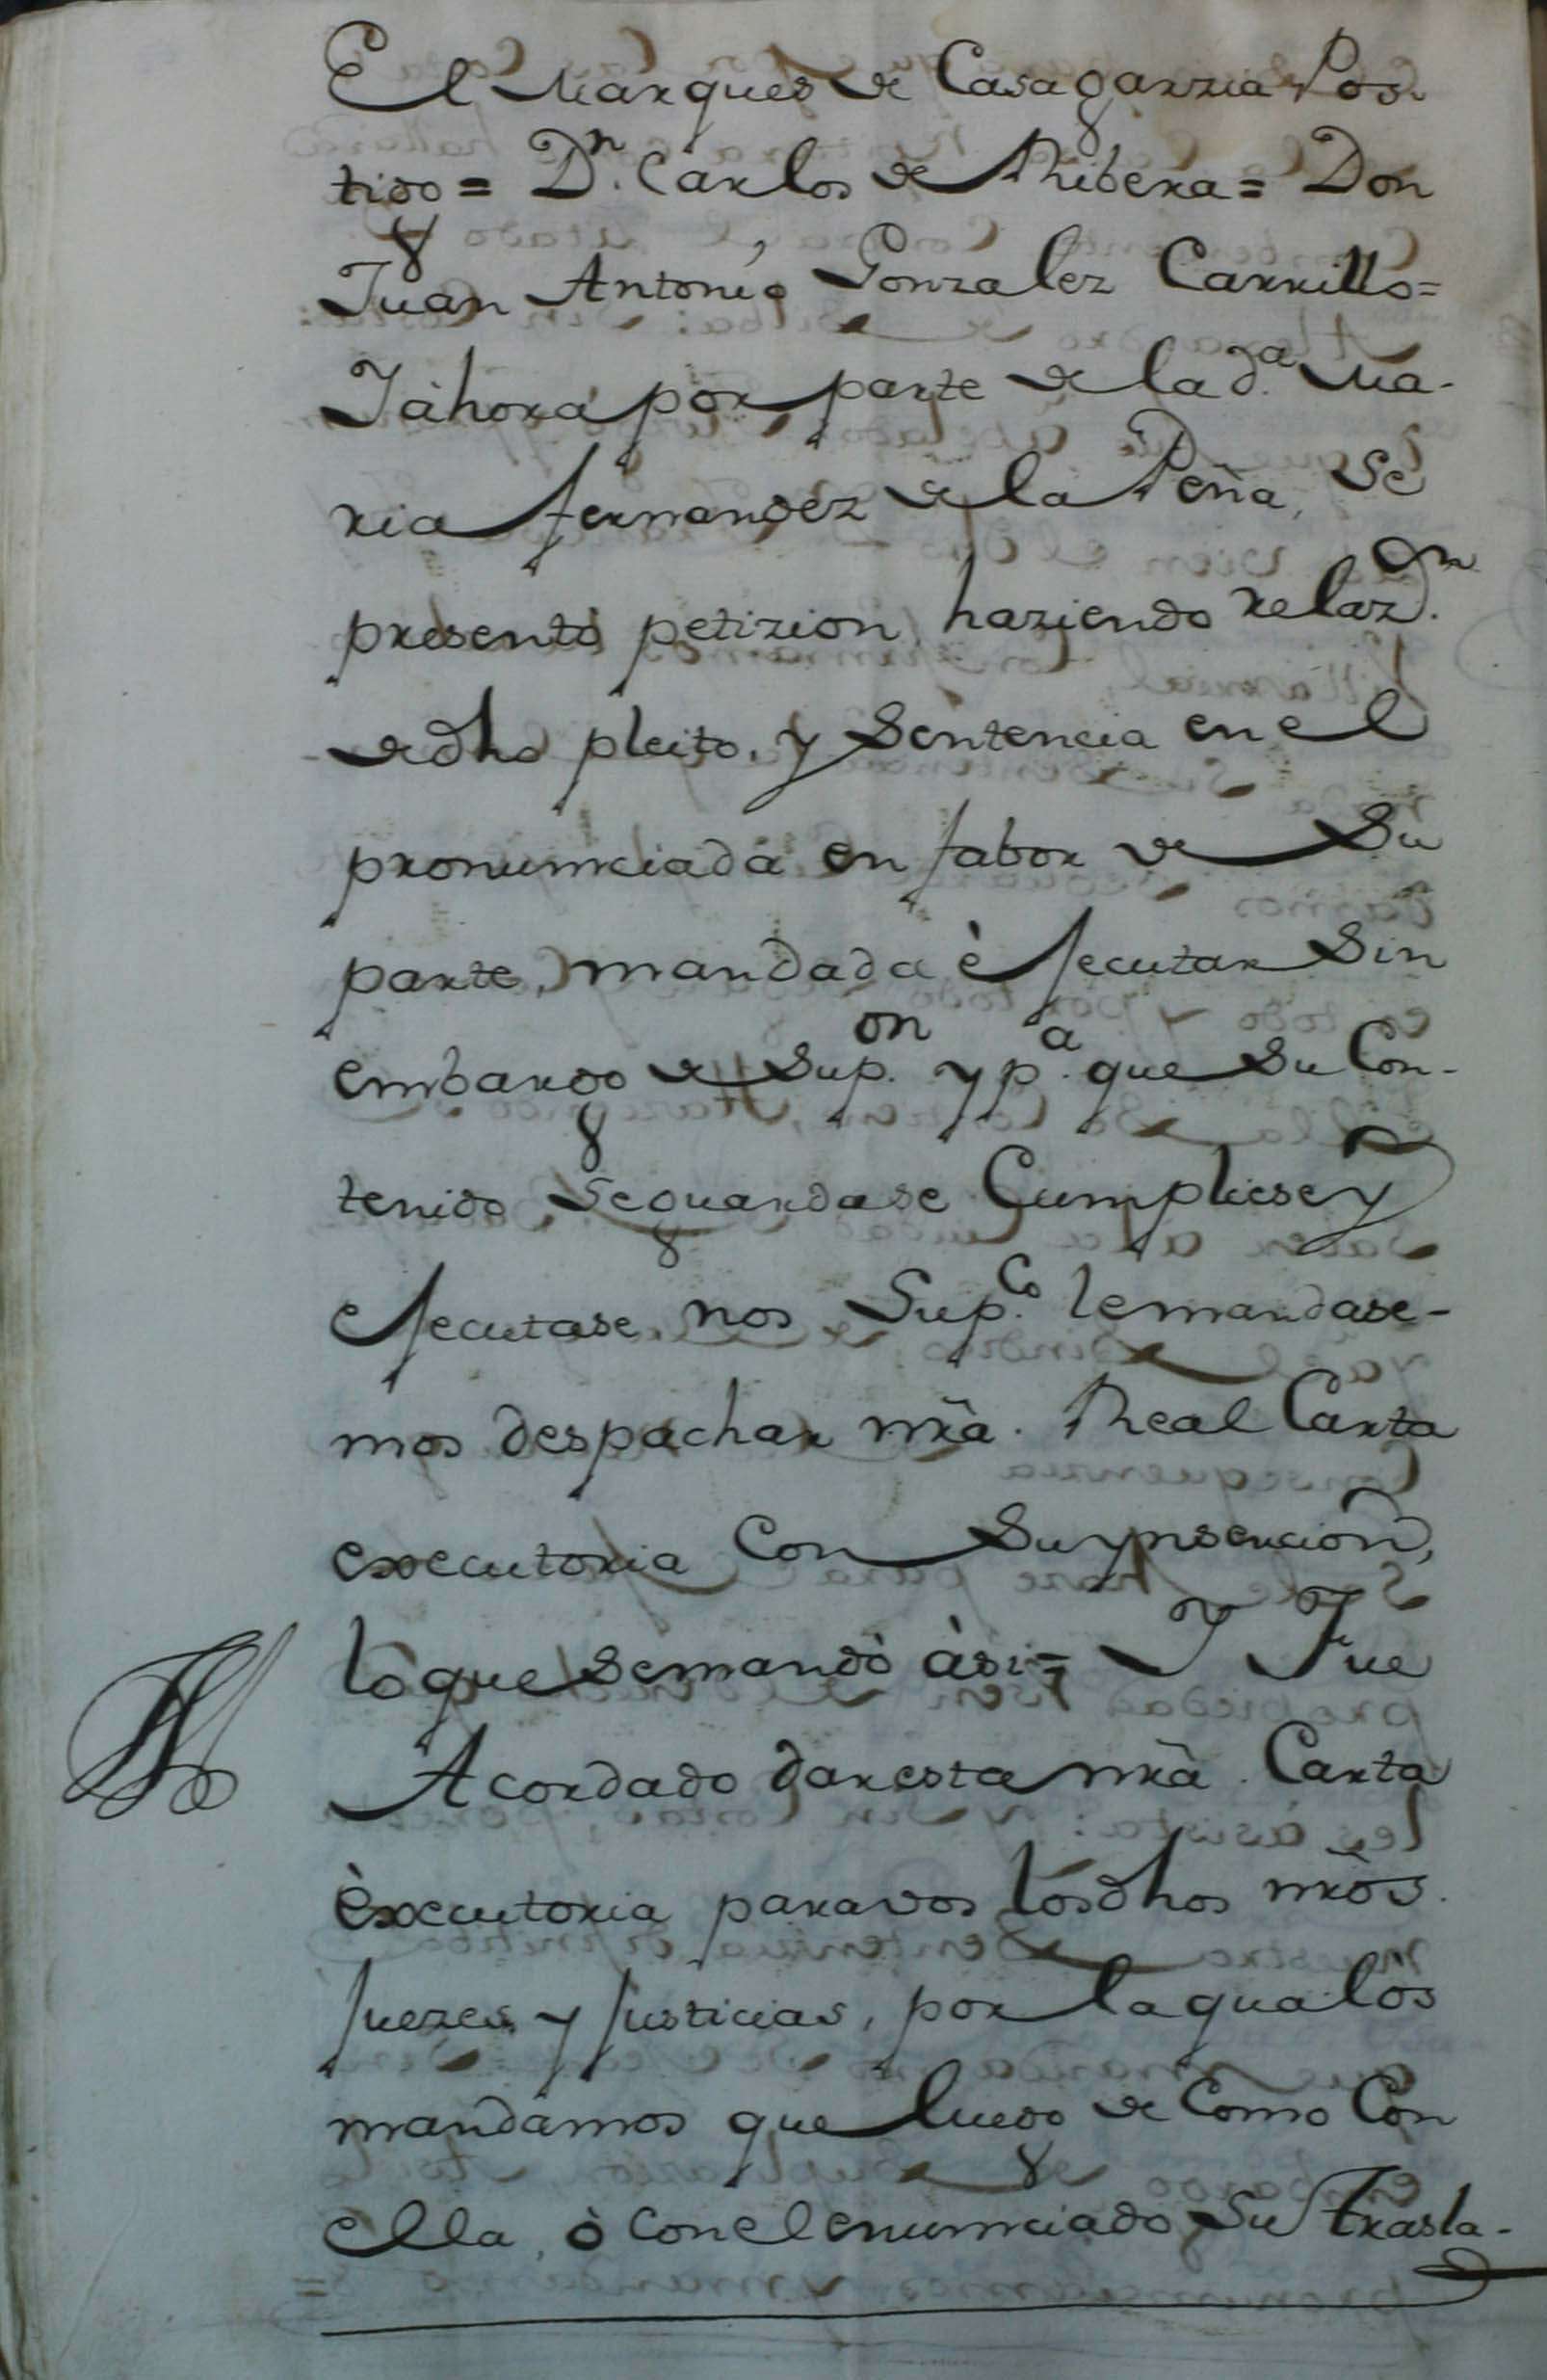 El Marques de Casagarzia Pos-
tigo = Dn. Carlos de Ribera = Don
Juan Antonio Gonzalez Carrillo =
Y àhora por parte de la da. Ma-
ria fernandez de la Peña, se
presentò petizion haziendo relazon.
de dho pleito, y Sentencia en el
pronunciada en fabor de Su
parte, mandada èjecutar Sin
embargo de Supon. y pa. que Su Con-
tenido Se guardase Cumpliese y
ejecutase, nos Supco. le mandase-
mos despachar nr̃a. Real Carta
executoria Con Su ynsercion,
lo que Se mandò àsi = Y Fue
Acordado dar esta nr̃a. Carta
èxecutoria para vos los dhos nr̃os.
Juezes y Justicias, por la qual os
mandamos que luego de Como Con
ella, ò con el enunciado Su trasla-